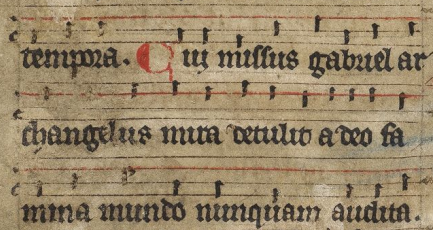 tempora. Cui missus gabriel ar
changelus mira detulit a deo fa
mina mundo nunquam audita.